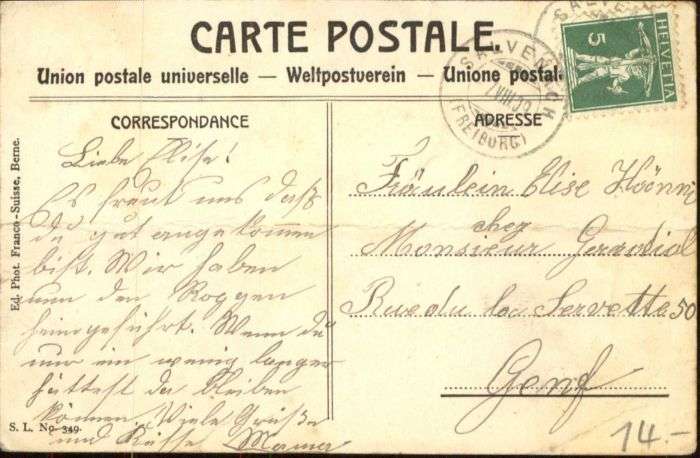 CARTE POSTALE.
Union postale universelle — Weltpostverein — Unione postal
SALVENACH
VIII.09
(FREIBURG)
SALVE
HELVETIA
5
CORRESPONDANCE
ADRESSE
Liebe Elise!
Es freut uns daß
du gut angekommen
bist. Wir haben
nun den Roggen
heimgeführt. Wenn du
nur ein wenig länger
hättest da bleiben
können. Viele Grüße
und Küsse
Fräulein Elise Hänni
chez
Monsieur
la Servette 50
Genf
Ed. Phot. Franco-Suisse, Berne.
S. L. No. 349.
14.-